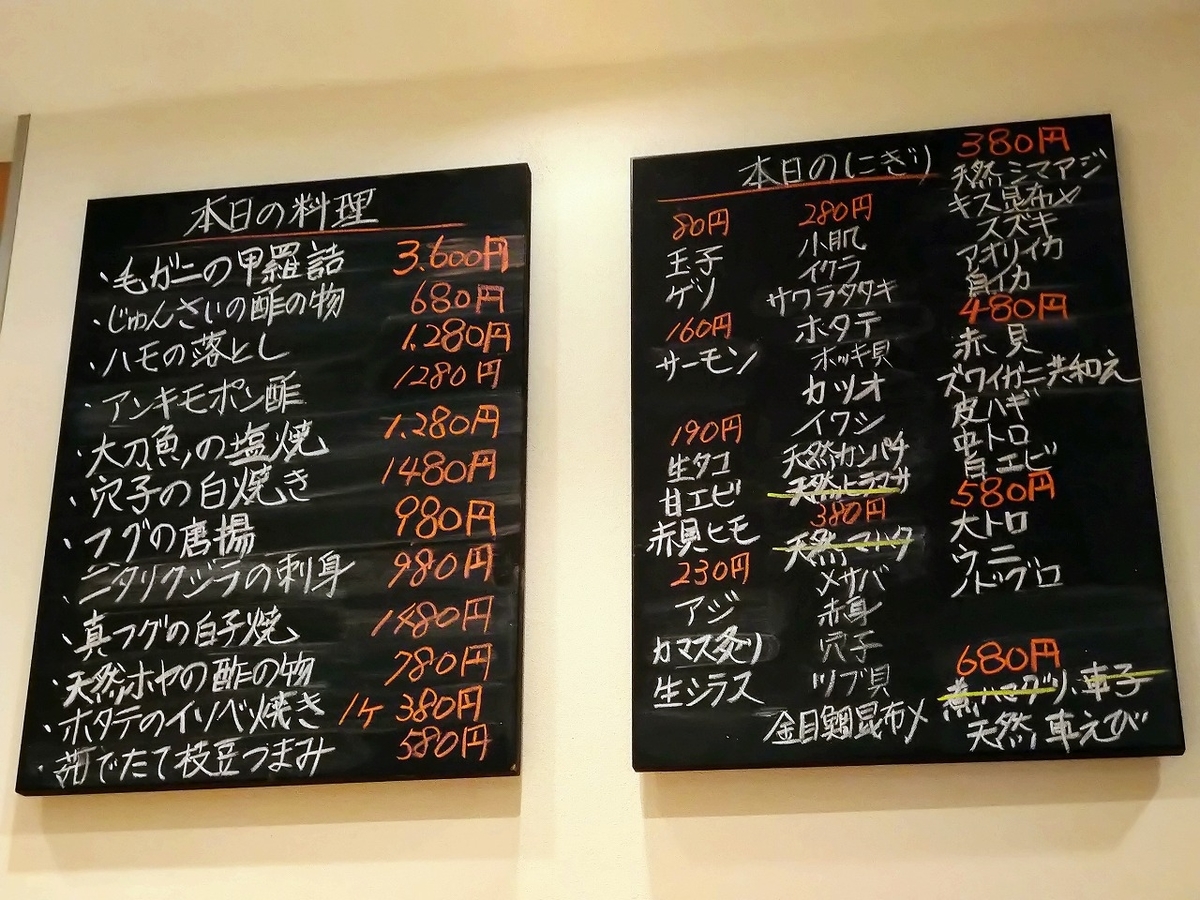 本日の料理
・毛ガニの甲羅詰 3.600円
・じゅんさいの酢の物 680円
・ハモの落とし 1.280円
・アンキモポン酢 1280円
・大刀魚の塩焼 1.280円
・穴子の白焼き 1480円
・フグの唐揚 980円
・ニタリクジラの刺身 980円
・真フグの白子焼 1480円
・天然ホヤの酢の物 780円
・ホタテのイソベ焼き 1ケ 380円
・茹でたて枝豆つまみ 580円
本日のにぎり
80円
玉子
ゲソ
160円
サーモン
190円
生タコ
甘エビ
赤貝ヒモ
230円
アジ
カマス炙り
生シラス
280円
小肌
イクラ
サワラタタキ
ホタテ
ホッキ貝
カツオ
イワシ
天然カンパチ
天然ヒラマサ
380円
天然マハタ
〆サバ
赤身
穴子
ツブ貝
金目鯛昆布〆
380円
天然シマアジ
キス昆布〆
スズキ
アオリイカ
白イカ
480円
赤貝
ズワイガニ共和え
皮ハギ
中トロ
白エビ
580円
大トロ
ウニ
ノドグロ
680円
煮ハマグリ、車子
天然車えび